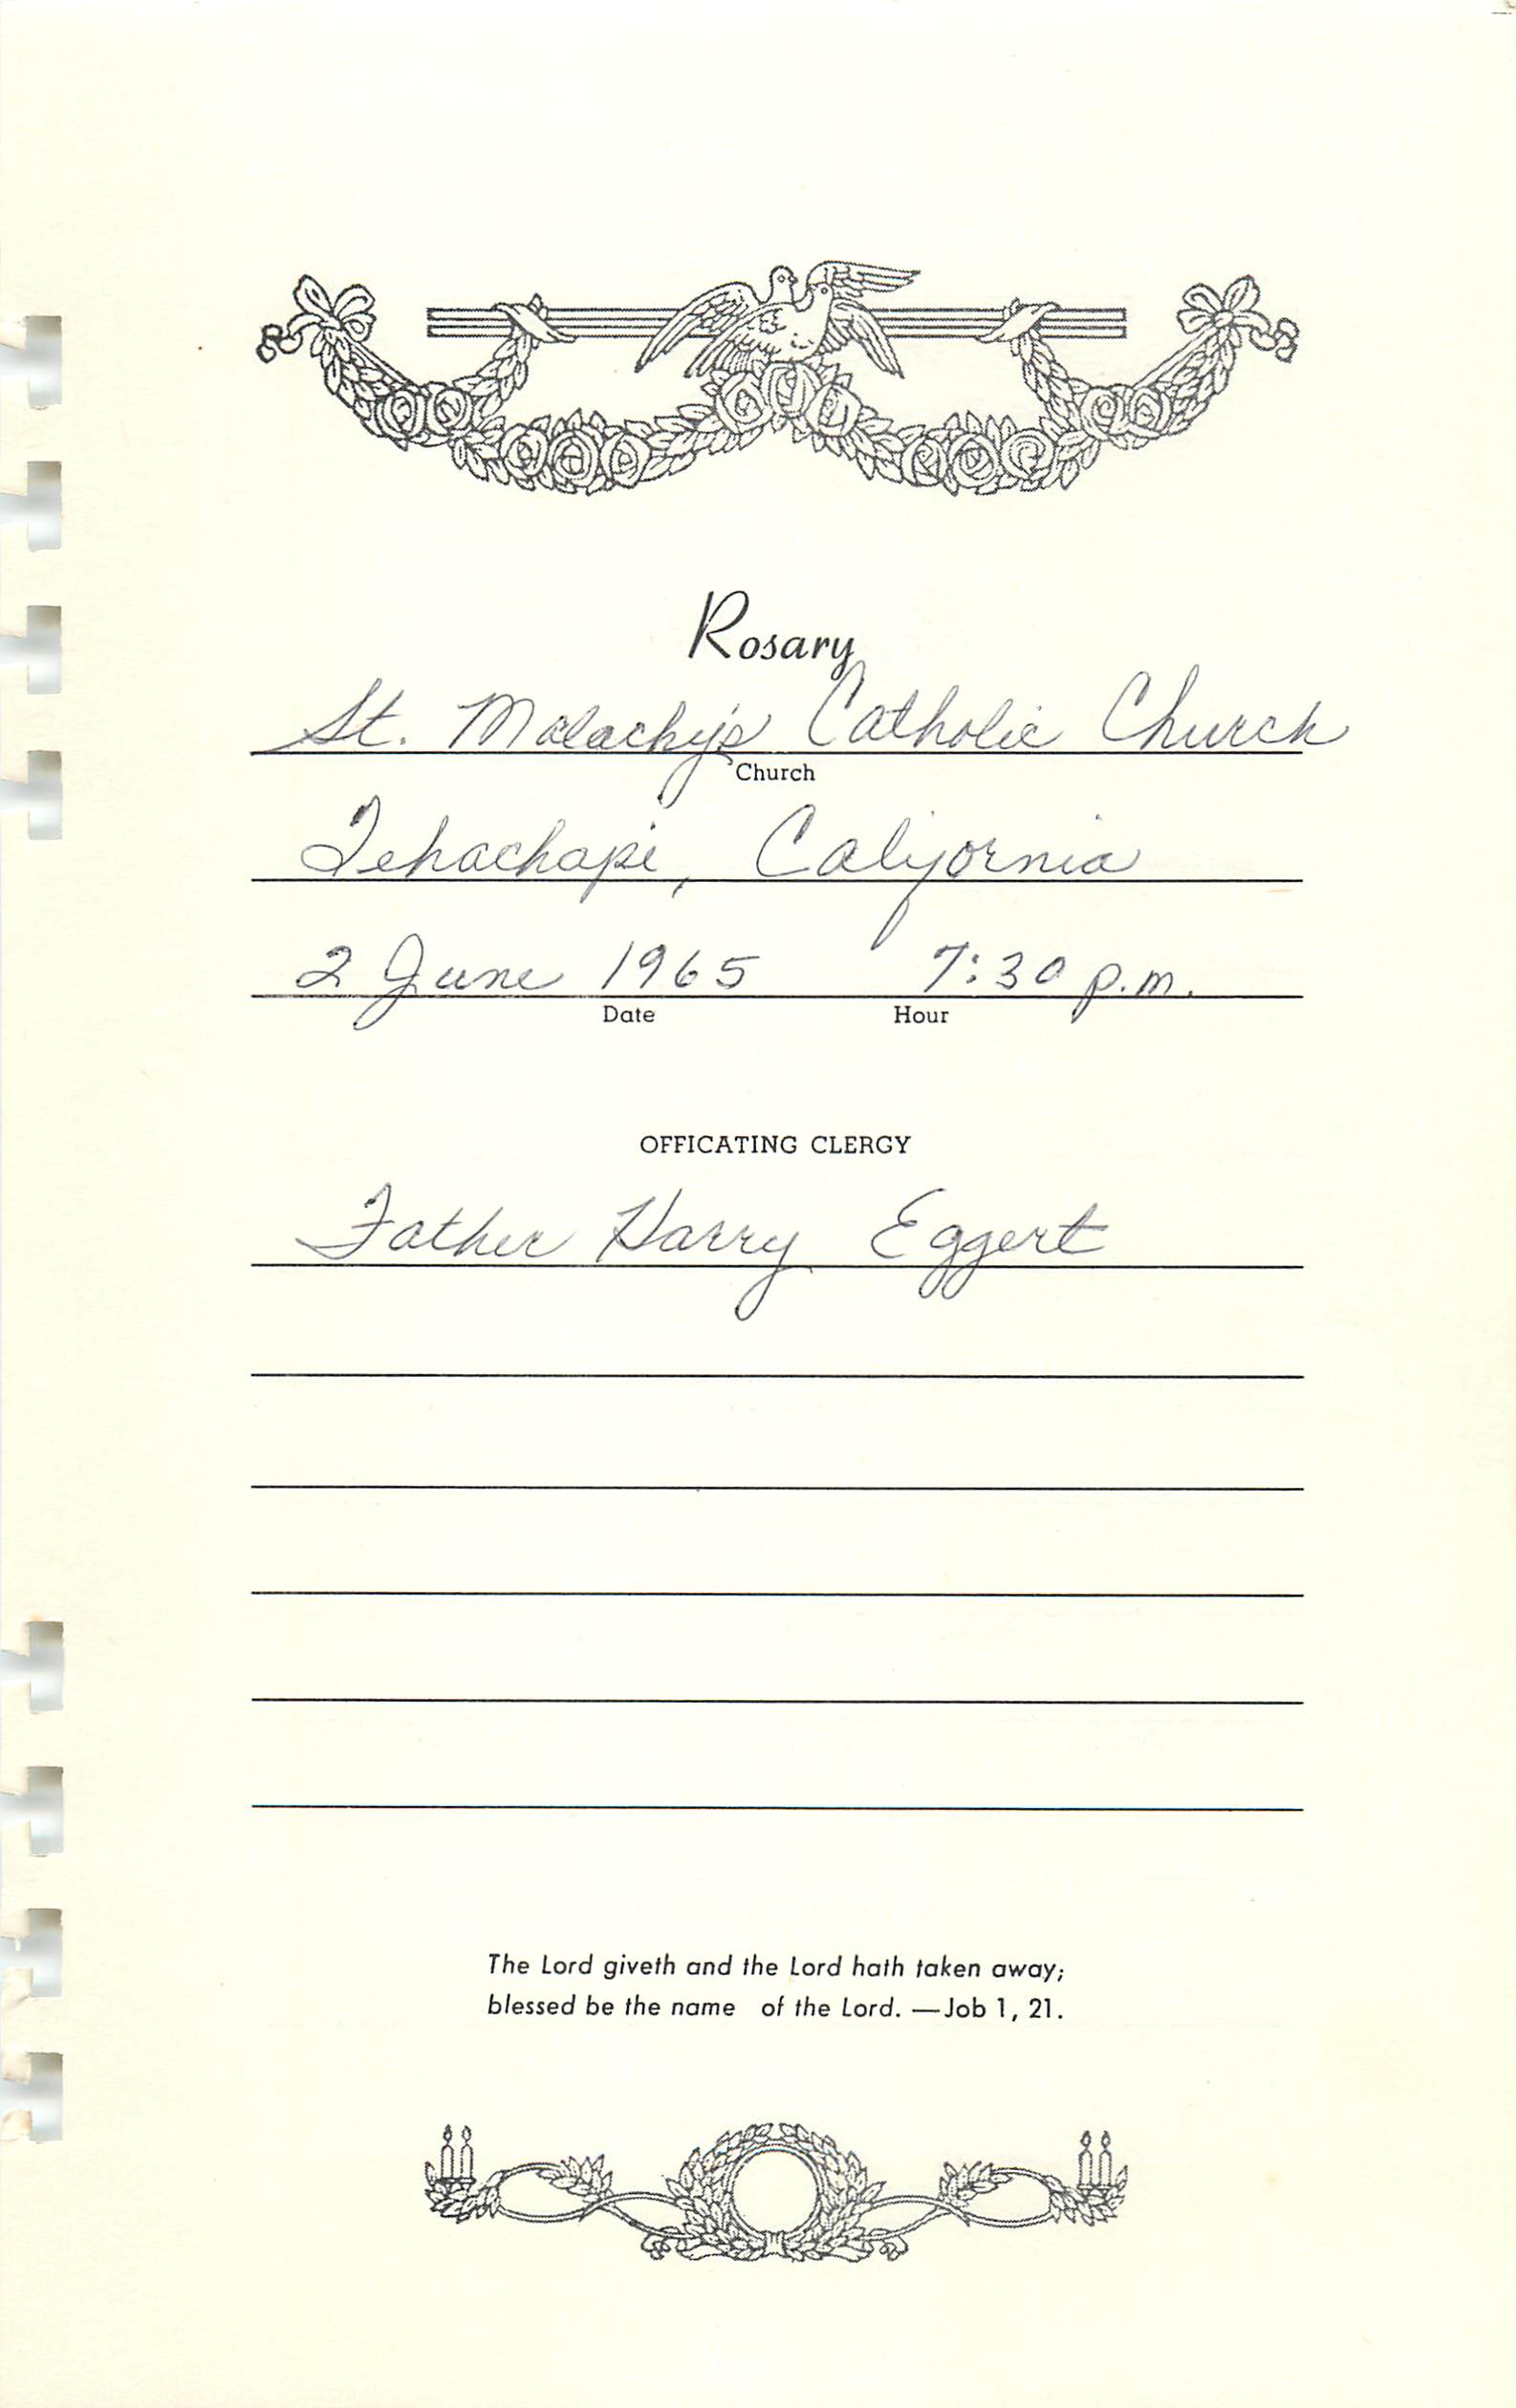 Rosary
St. Malachy's Catholic Church
Church
Tehachapi, California
2 June 1965 7:30 p.m.
Date Hour
OFFICATING CLERGY
Father Harry Eggert
The Lord giveth and the Lord hath taken away;
blessed be the name of the Lord. —Job 1, 21.